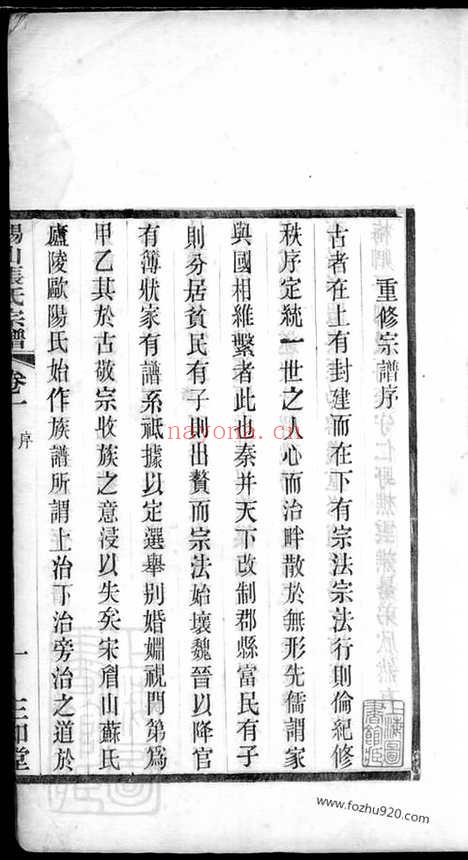 重修宗譜序
古者在上有封建而在下有宗法宗法行則倫紀修
秩序定統一世之人心而治畔散於無形先儒謂家
與國相維繫者此也秦并天下改制郡縣富民有子
則分居貧民有子則出贅而宗法始壞魏晉以降官
有簿狀家有譜系祇據以定選舉别婚婣視門第爲
甲乙其於古敬宗收族之意浸以失矣宋眉山蘇氏
廬陵歐陽氏始作族譜所謂上治下治旁治之道於
錫山張氏宗譜 卷一 序 一 三和堂
上海圖書館藏
nayona.cn
www.fozhu920.com